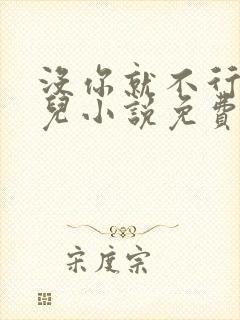 沒你就不行
兒小說免費
宋度宗